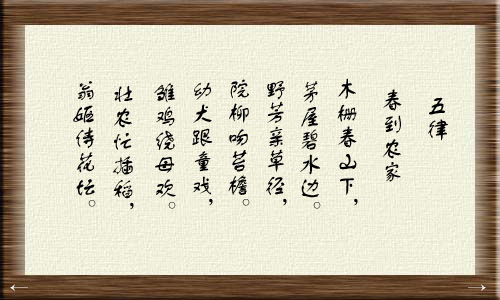 五律
春到农家
木栅春山下，
茅屋碧水边。
野芳亲草径，
院柳吻苔檐。
幼犬跟童戏，
雏鸡绕母欢。
壮农忙插稲，
翁妪侍花坛。